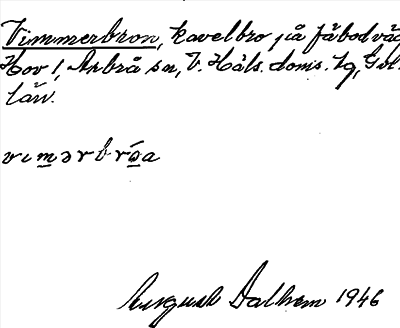 Vimmerbron, kavelbro på fäbodväg
Hov 1, Arbrå sn, V. Häls. doms. tg, Gvl.
län.
vɪmərbróa
August Dalhem 1946